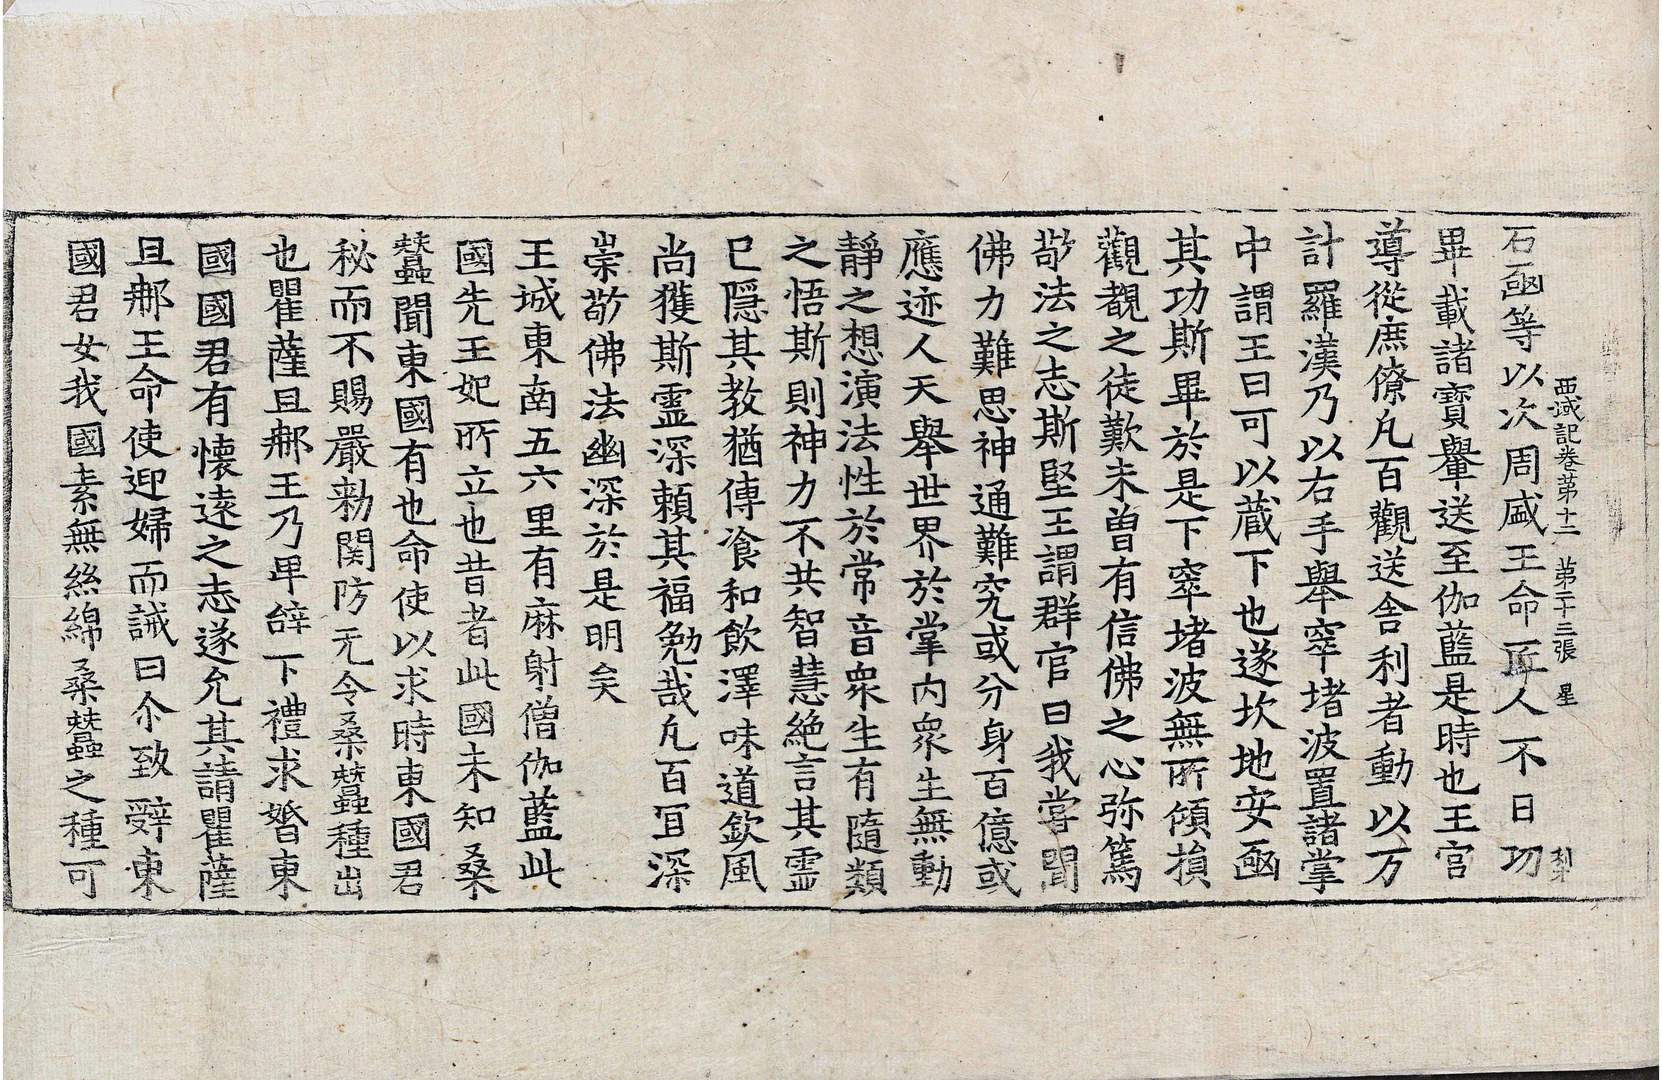 西域記卷第十二 第二十三張 星
石凾等以次周盛王命匠人不日功
畢載諸寶轝輦送至伽藍是時也王官
導從庶僚凡百觀送舍利者動以万
計羅漢乃以右手舉窣堵波置諸掌
中謂王曰可以藏下也遂坎地安凾
其功斯畢於是下窣堵波無所傾損
觀覩之徒歎未曾有信佛之心弥篤
敬法之志斯堅王謂群官曰我嘗聞
佛力難思神通難究或分身百億或
應迹人天舉世界於掌內衆生無動
靜之想演法性於常音衆生有隨類
之悟斯則神力不共智慧絶言其靈
已隱其教猶傳飡和飲澤味道欽風
尚獲斯靈深賴其福勉哉凡百冝深
崇敬佛法幽深於是明矣
王城東南五六里有麻射僧伽藍此
國先王妃所立也昔者此國未知桑
蠶聞東國有也命使以求時東國君
秘而不賜嚴勑関防无令桑蠶種出
也瞿薩旦那王乃卑辝下禮求婚東
國國君有懷遠之志遂允其請瞿薩
旦那王命使迎婦而誡曰尒致辭東
國君女我國素無絲綿桑蠶之種可